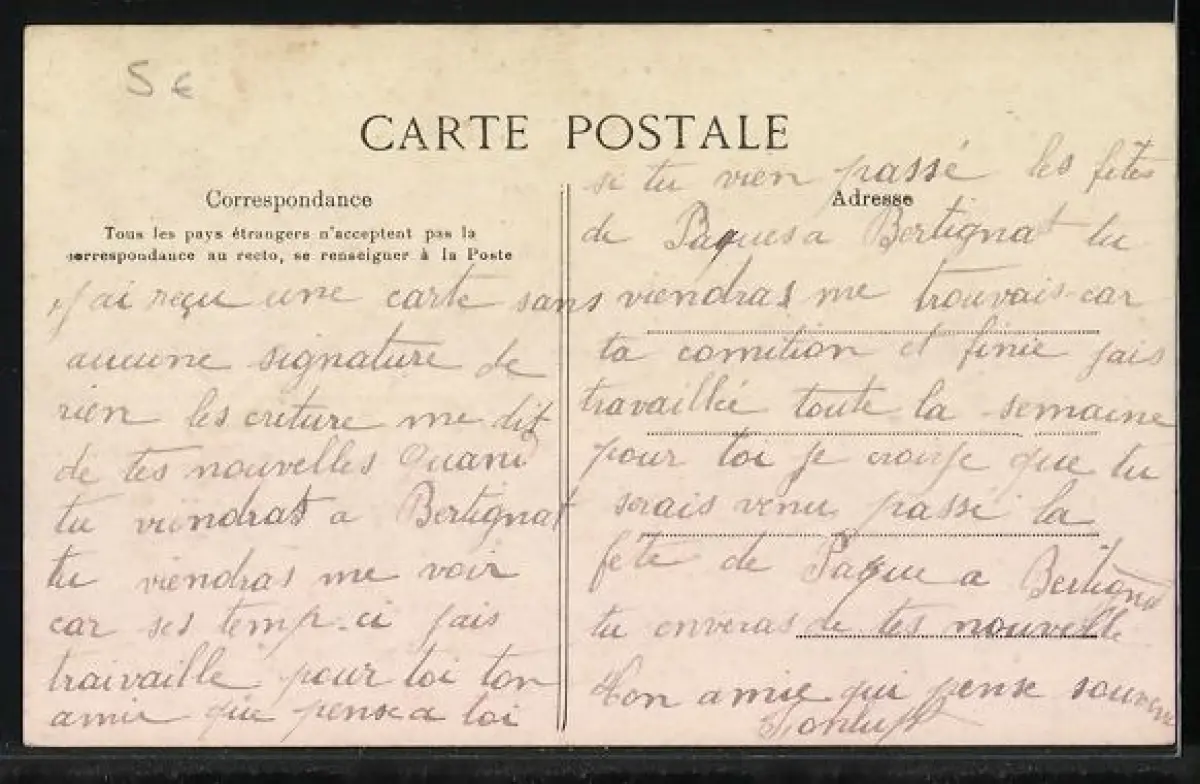 5 €
CARTE POSTALE
Correspondance
Tous les pays étrangers n'acceptent pas la
correspondance au recto, se renseigner à la Poste
j'ai reçu une carte sans
aucune signature de
rien les criture me dit
de tes nouvelles Quand
tu viendras a Bertignat
tu viendras me voir
car ses temp-ci jais
traivaille pour toi ton
amie que pense a toi
Adresse
si tu vien passé les fêtes
de Paques a Bertignat tu
viendras me trouvais car
ta comition et finie jais
travaillée toute la semaine
pour toi je croije que tu
serais venu passé la
fête de Paque a Bertignat
tu enveras de tes nouvelle
Ton amie qui pense souven